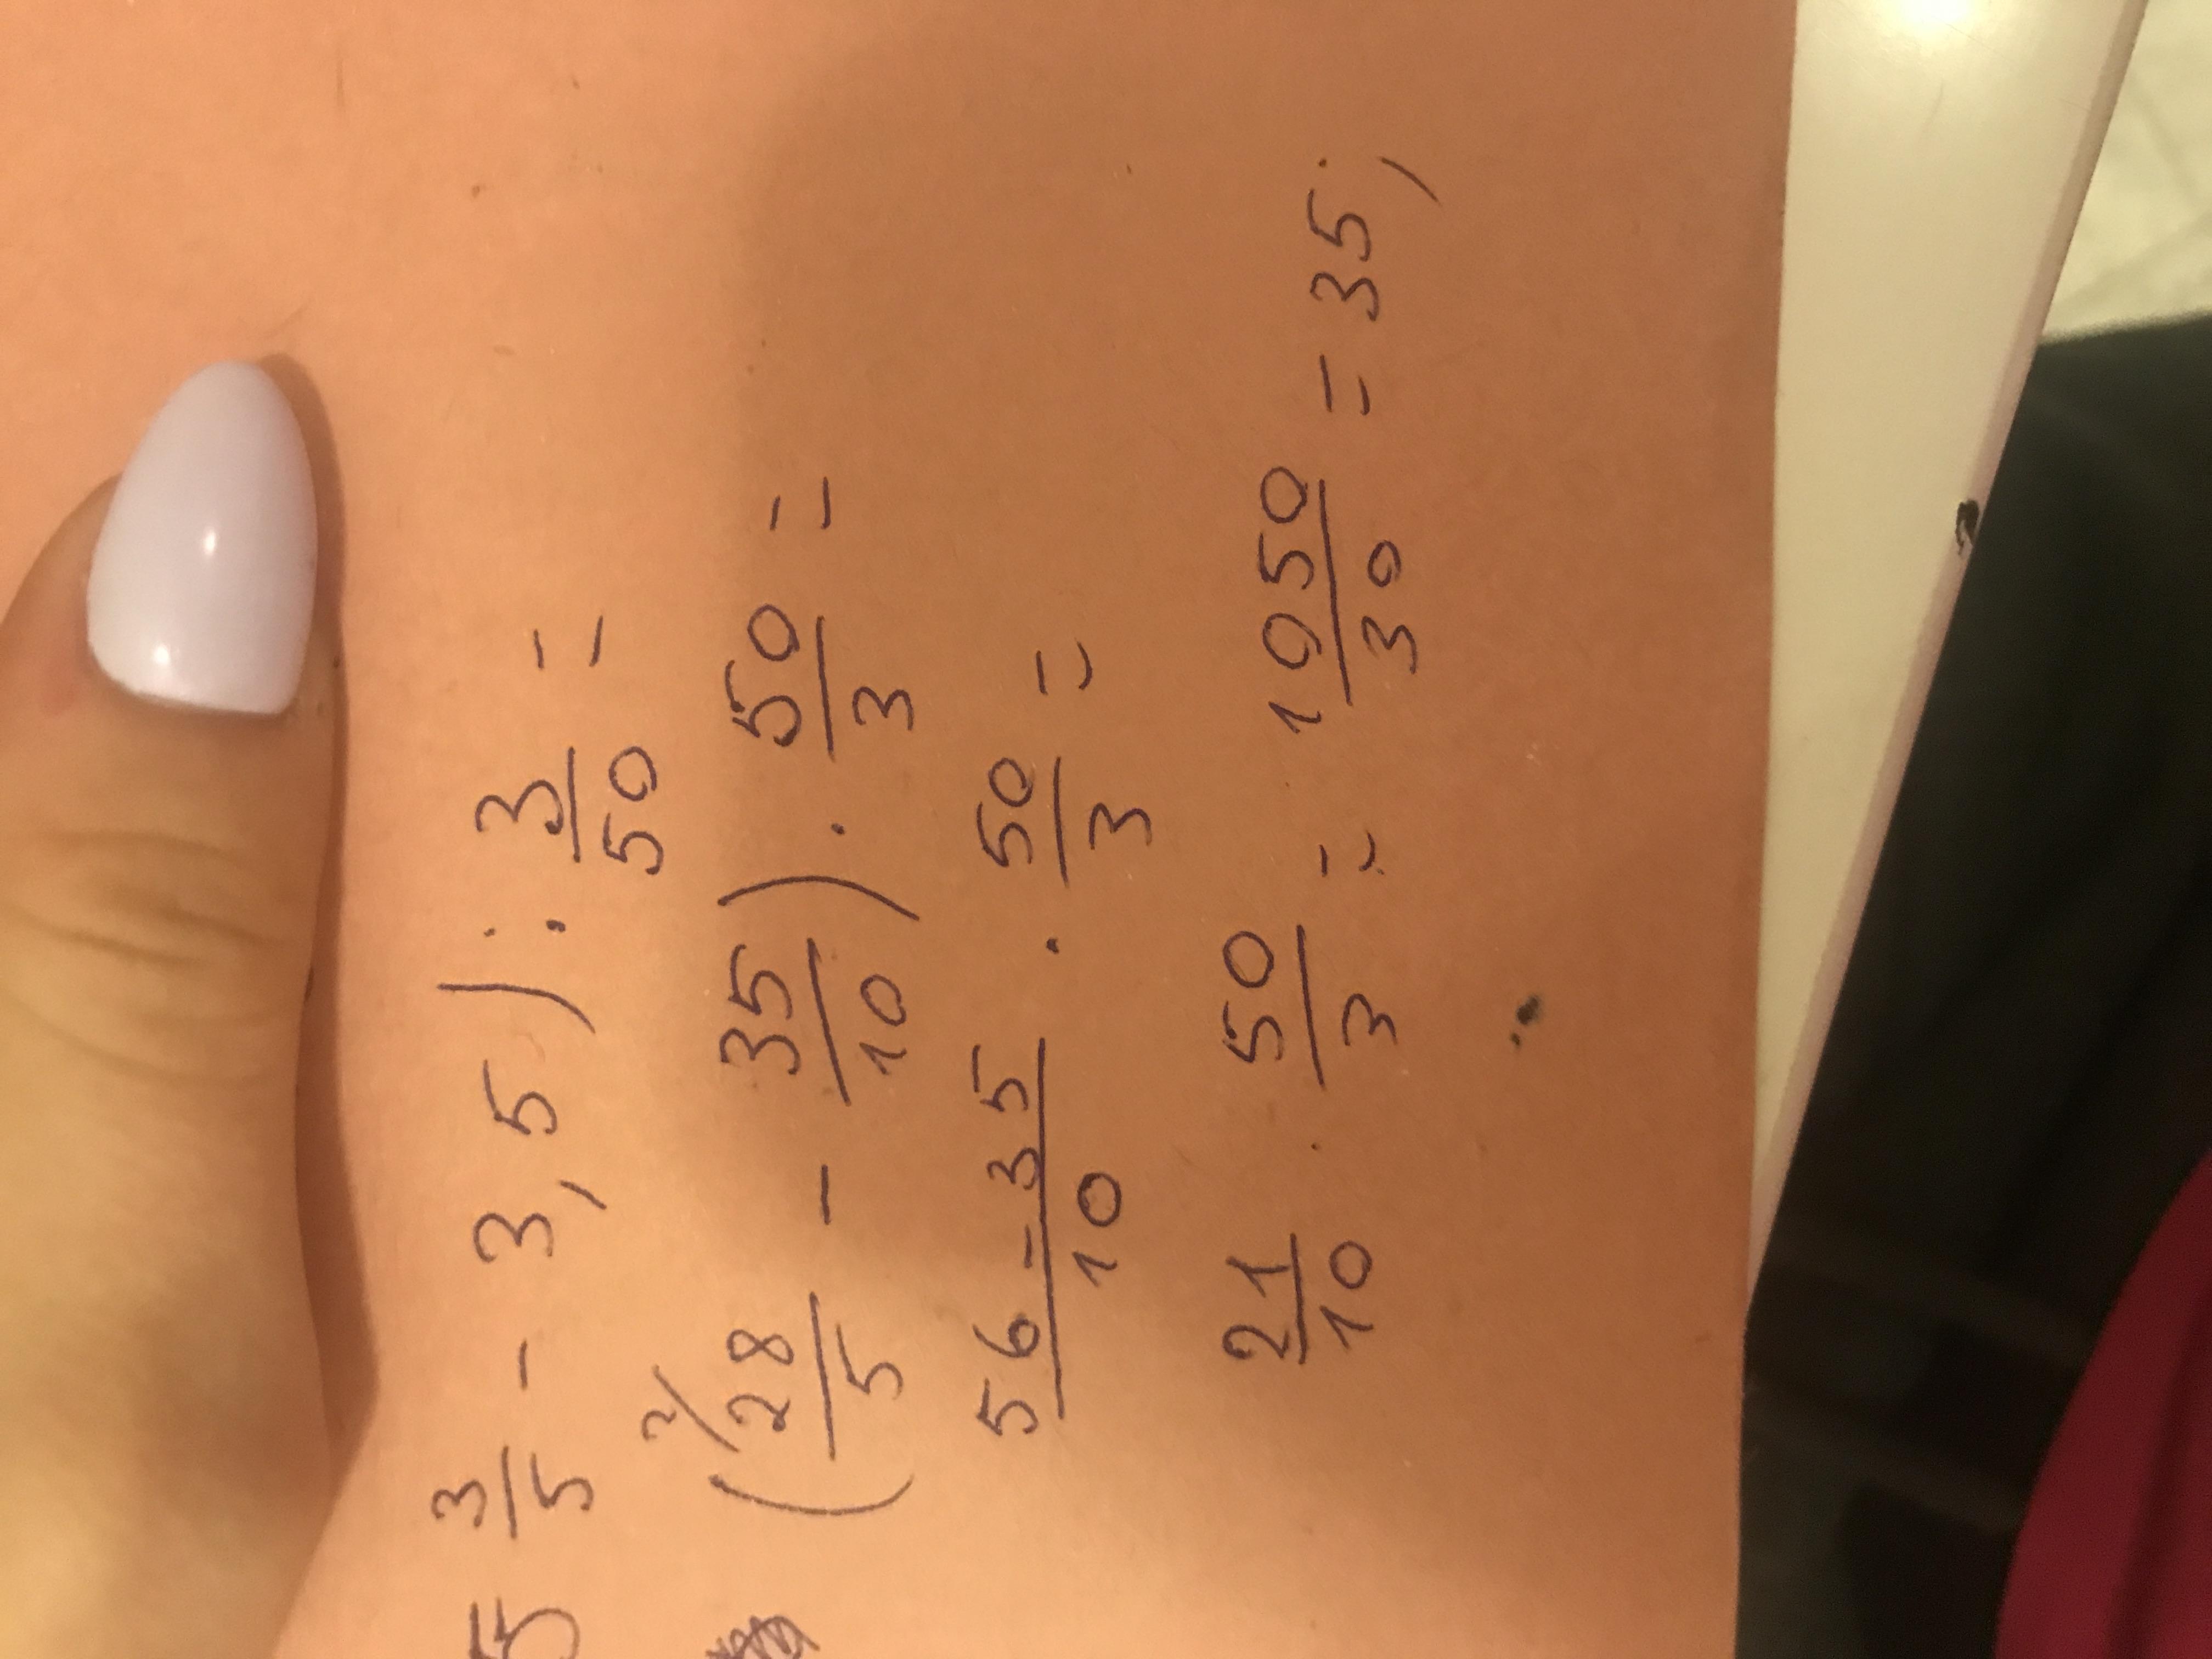 5 3/5 - 3,5) : 3/50 =
(28/5 2/ - 35/10) · 50/3 =
56-35/10 · 50/3 =
21/10 · 50/3 = 1050/30 = 35;